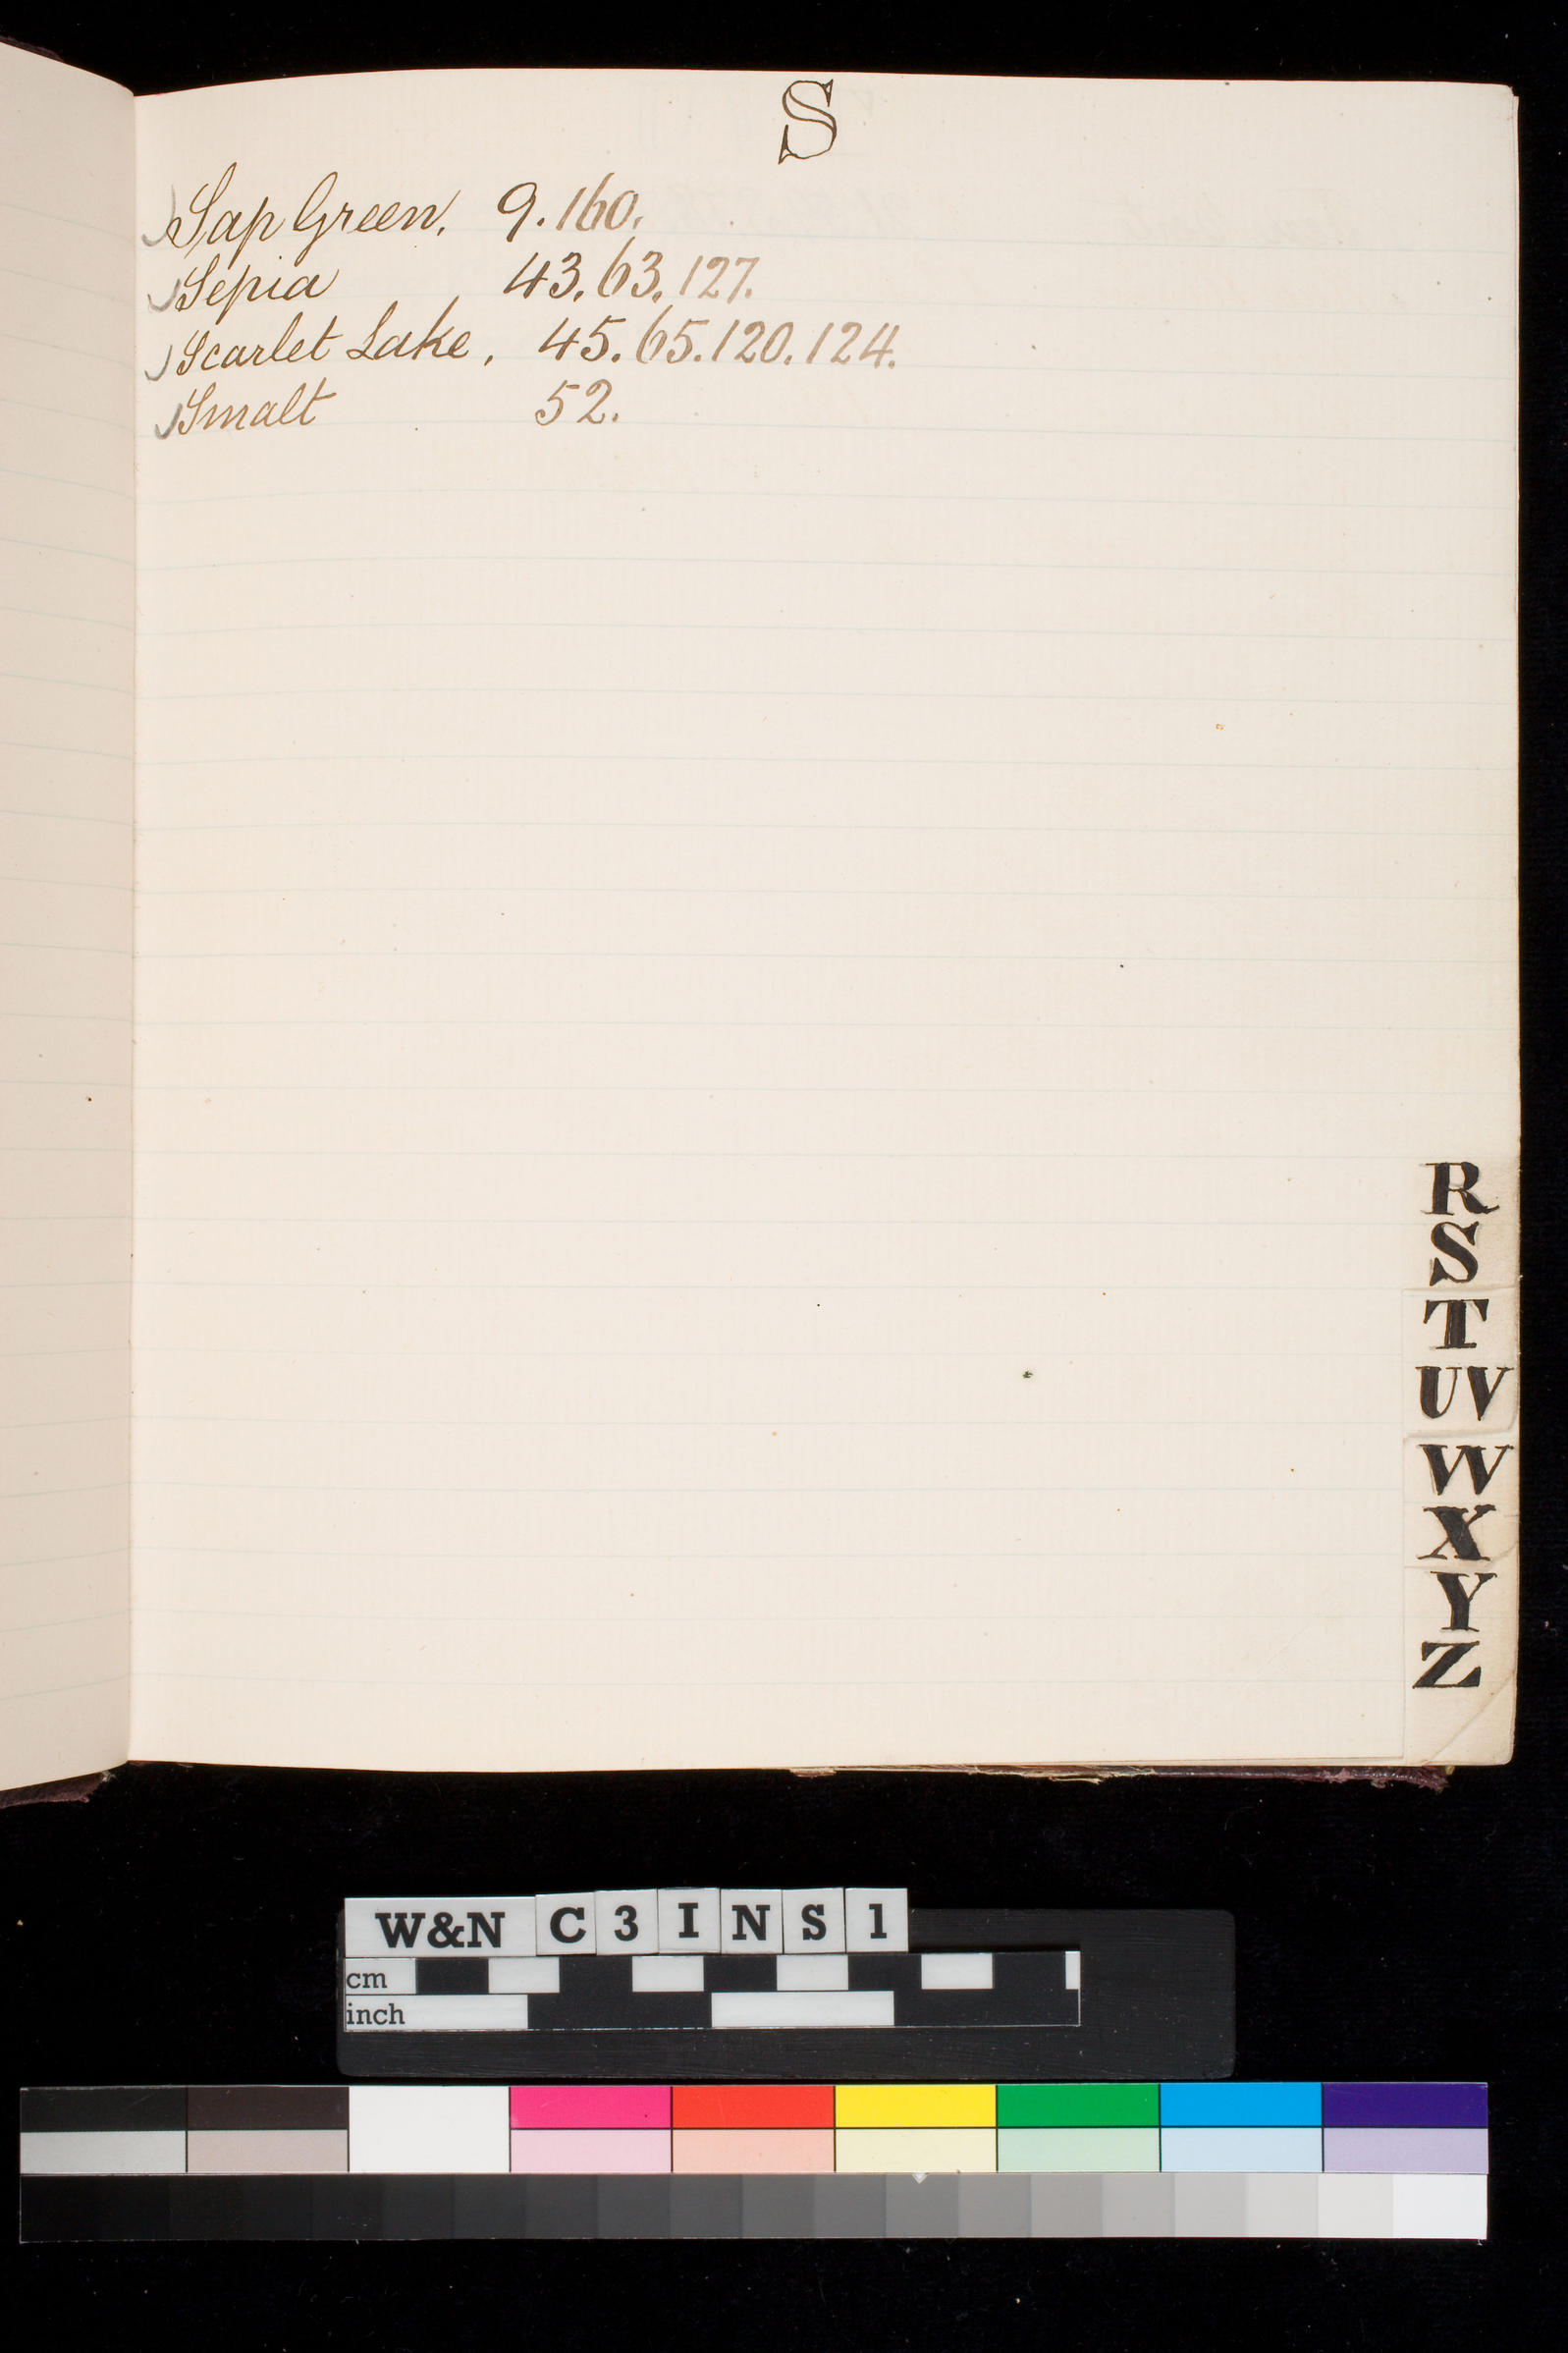 S
Sap Green. 9. 160.
Sepia 43. 63. 127.
Scarlet Lake. 45. 65. 120. 124.
Smalt 52.
R
S
T
UV
W
X
Y
Z
W&N C 3 I N S 1
cm
inch